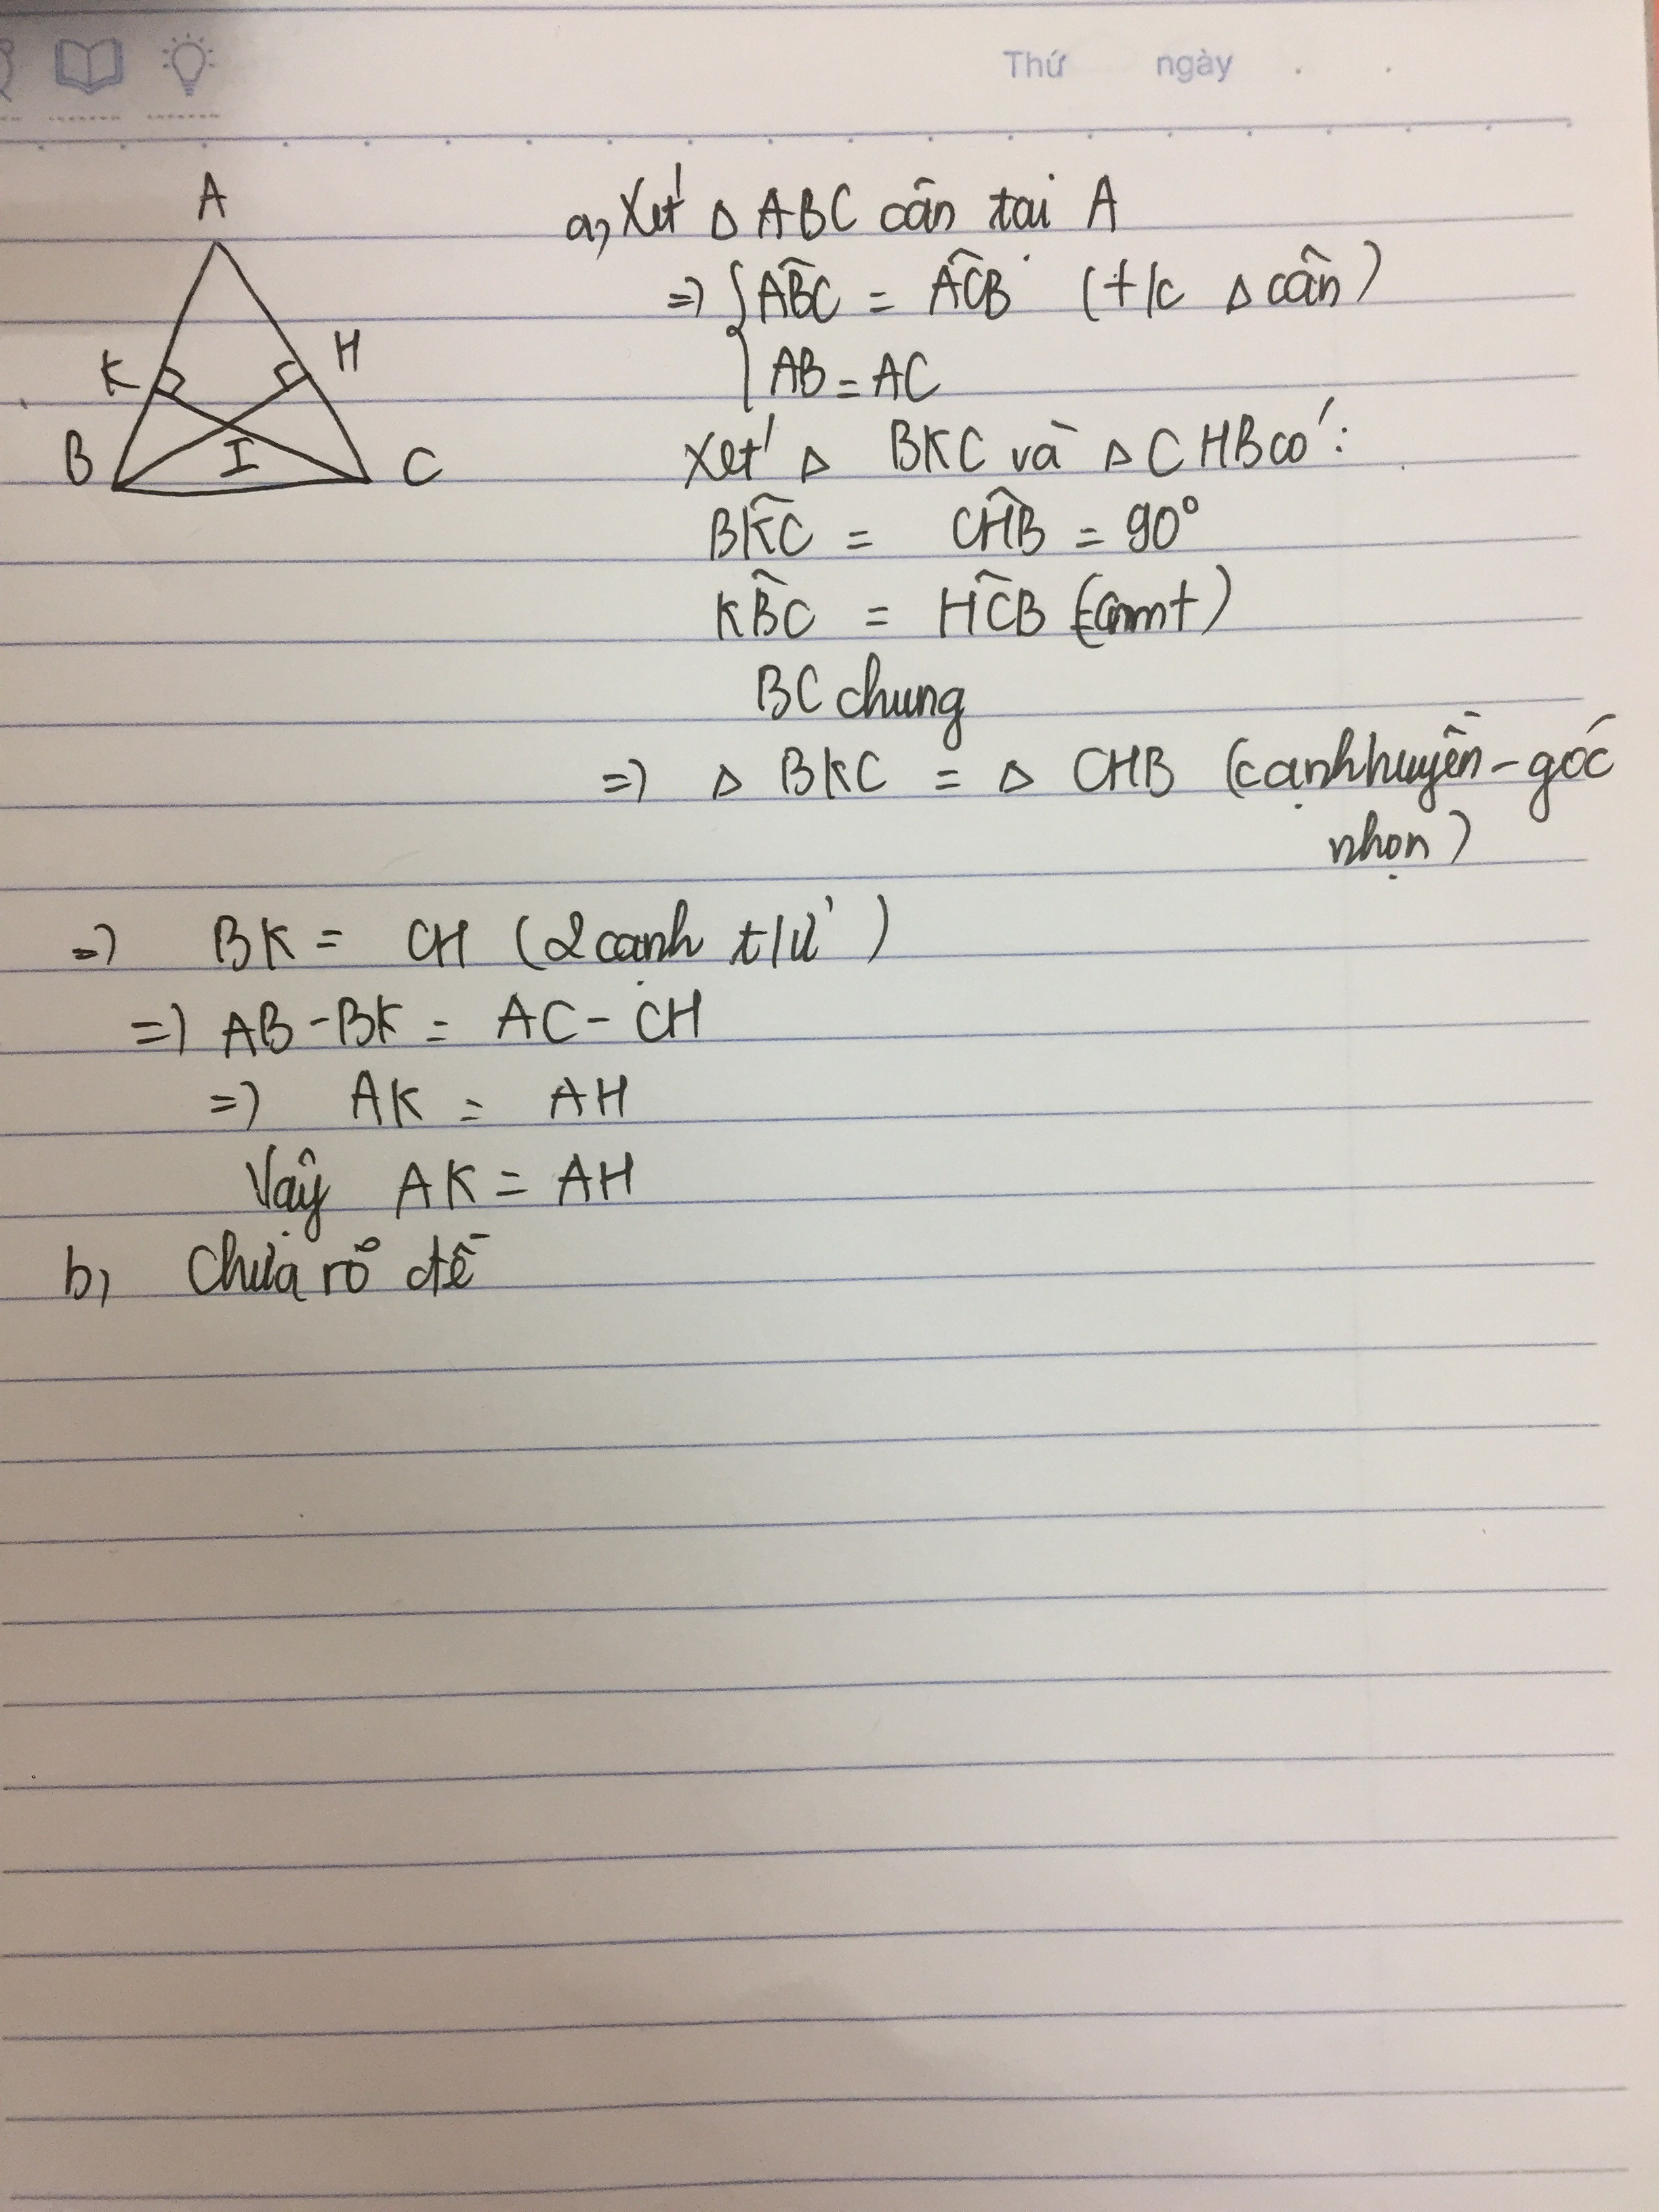 Thứ ngày . .
A
K
H
B
I
C
a, Xét Δ ABC cân tại A
=> { ABĈ = ACB̂ (t/c Δ cân)
AB = AC
Xét Δ BKC và Δ CHB có :
BK̂C = CĤB = 90°
KB̂C = HĈB (cmt)
BC chung
=> Δ BKC = Δ CHB (cạnh huyền - góc
nhọn)
=> BK = CH (2 cạnh t/ứ)
=> AB - BK = AC - CH
=> AK = AH
Vậy AK = AH
b, Chưa rõ đề